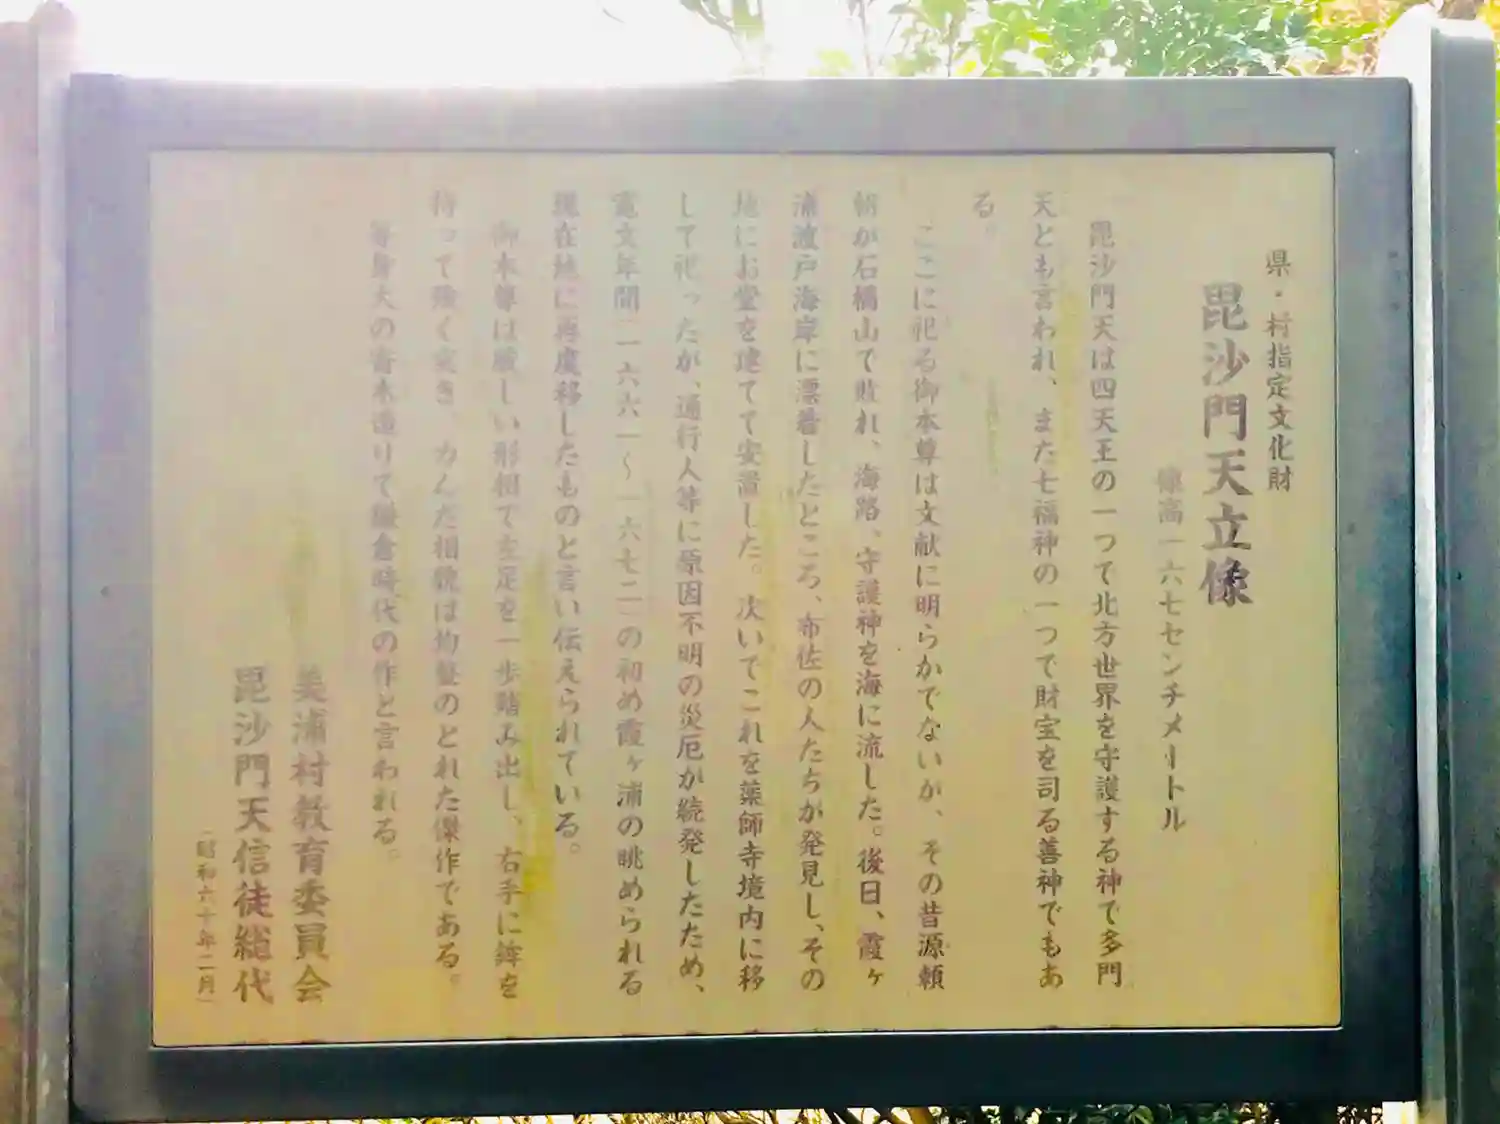 県・村指定文化財
毘沙門天立像
像高一六七センチメートル
毘沙門天は四天王の一つで北方世界を守護する神で多門
天とも言われ、また七福神の一つで財宝を司る善神でもあ
る。
ここに祀る御本尊は文献に明らかでないが、その昔源頼
朝が石橋山で敗れ、海路、守護神を海に流した。後日、霞ヶ
浦波戸海岸に漂着したところ、布佐の人たちが発見し、その
地にお堂を建てて安置した。次いでこれを薬師寺境内に移
して祀ったが、通行人等に原因不明の災厄が続発したため、
寛文年間(一六六一〜一六七二)の初め霞ヶ浦の眺められる
現在地に再度移したものと言い伝えられている。
御本尊は厳しい形相で左足を一歩踏み出し、右手に鉾を
持って強く突き、力んだ相貌は均整のとれた傑作である。
等身大の寄木造りで鎌倉時代の作と言われる。
美浦村教育委員会
毘沙門天信徒総代
(昭和六十年二月)